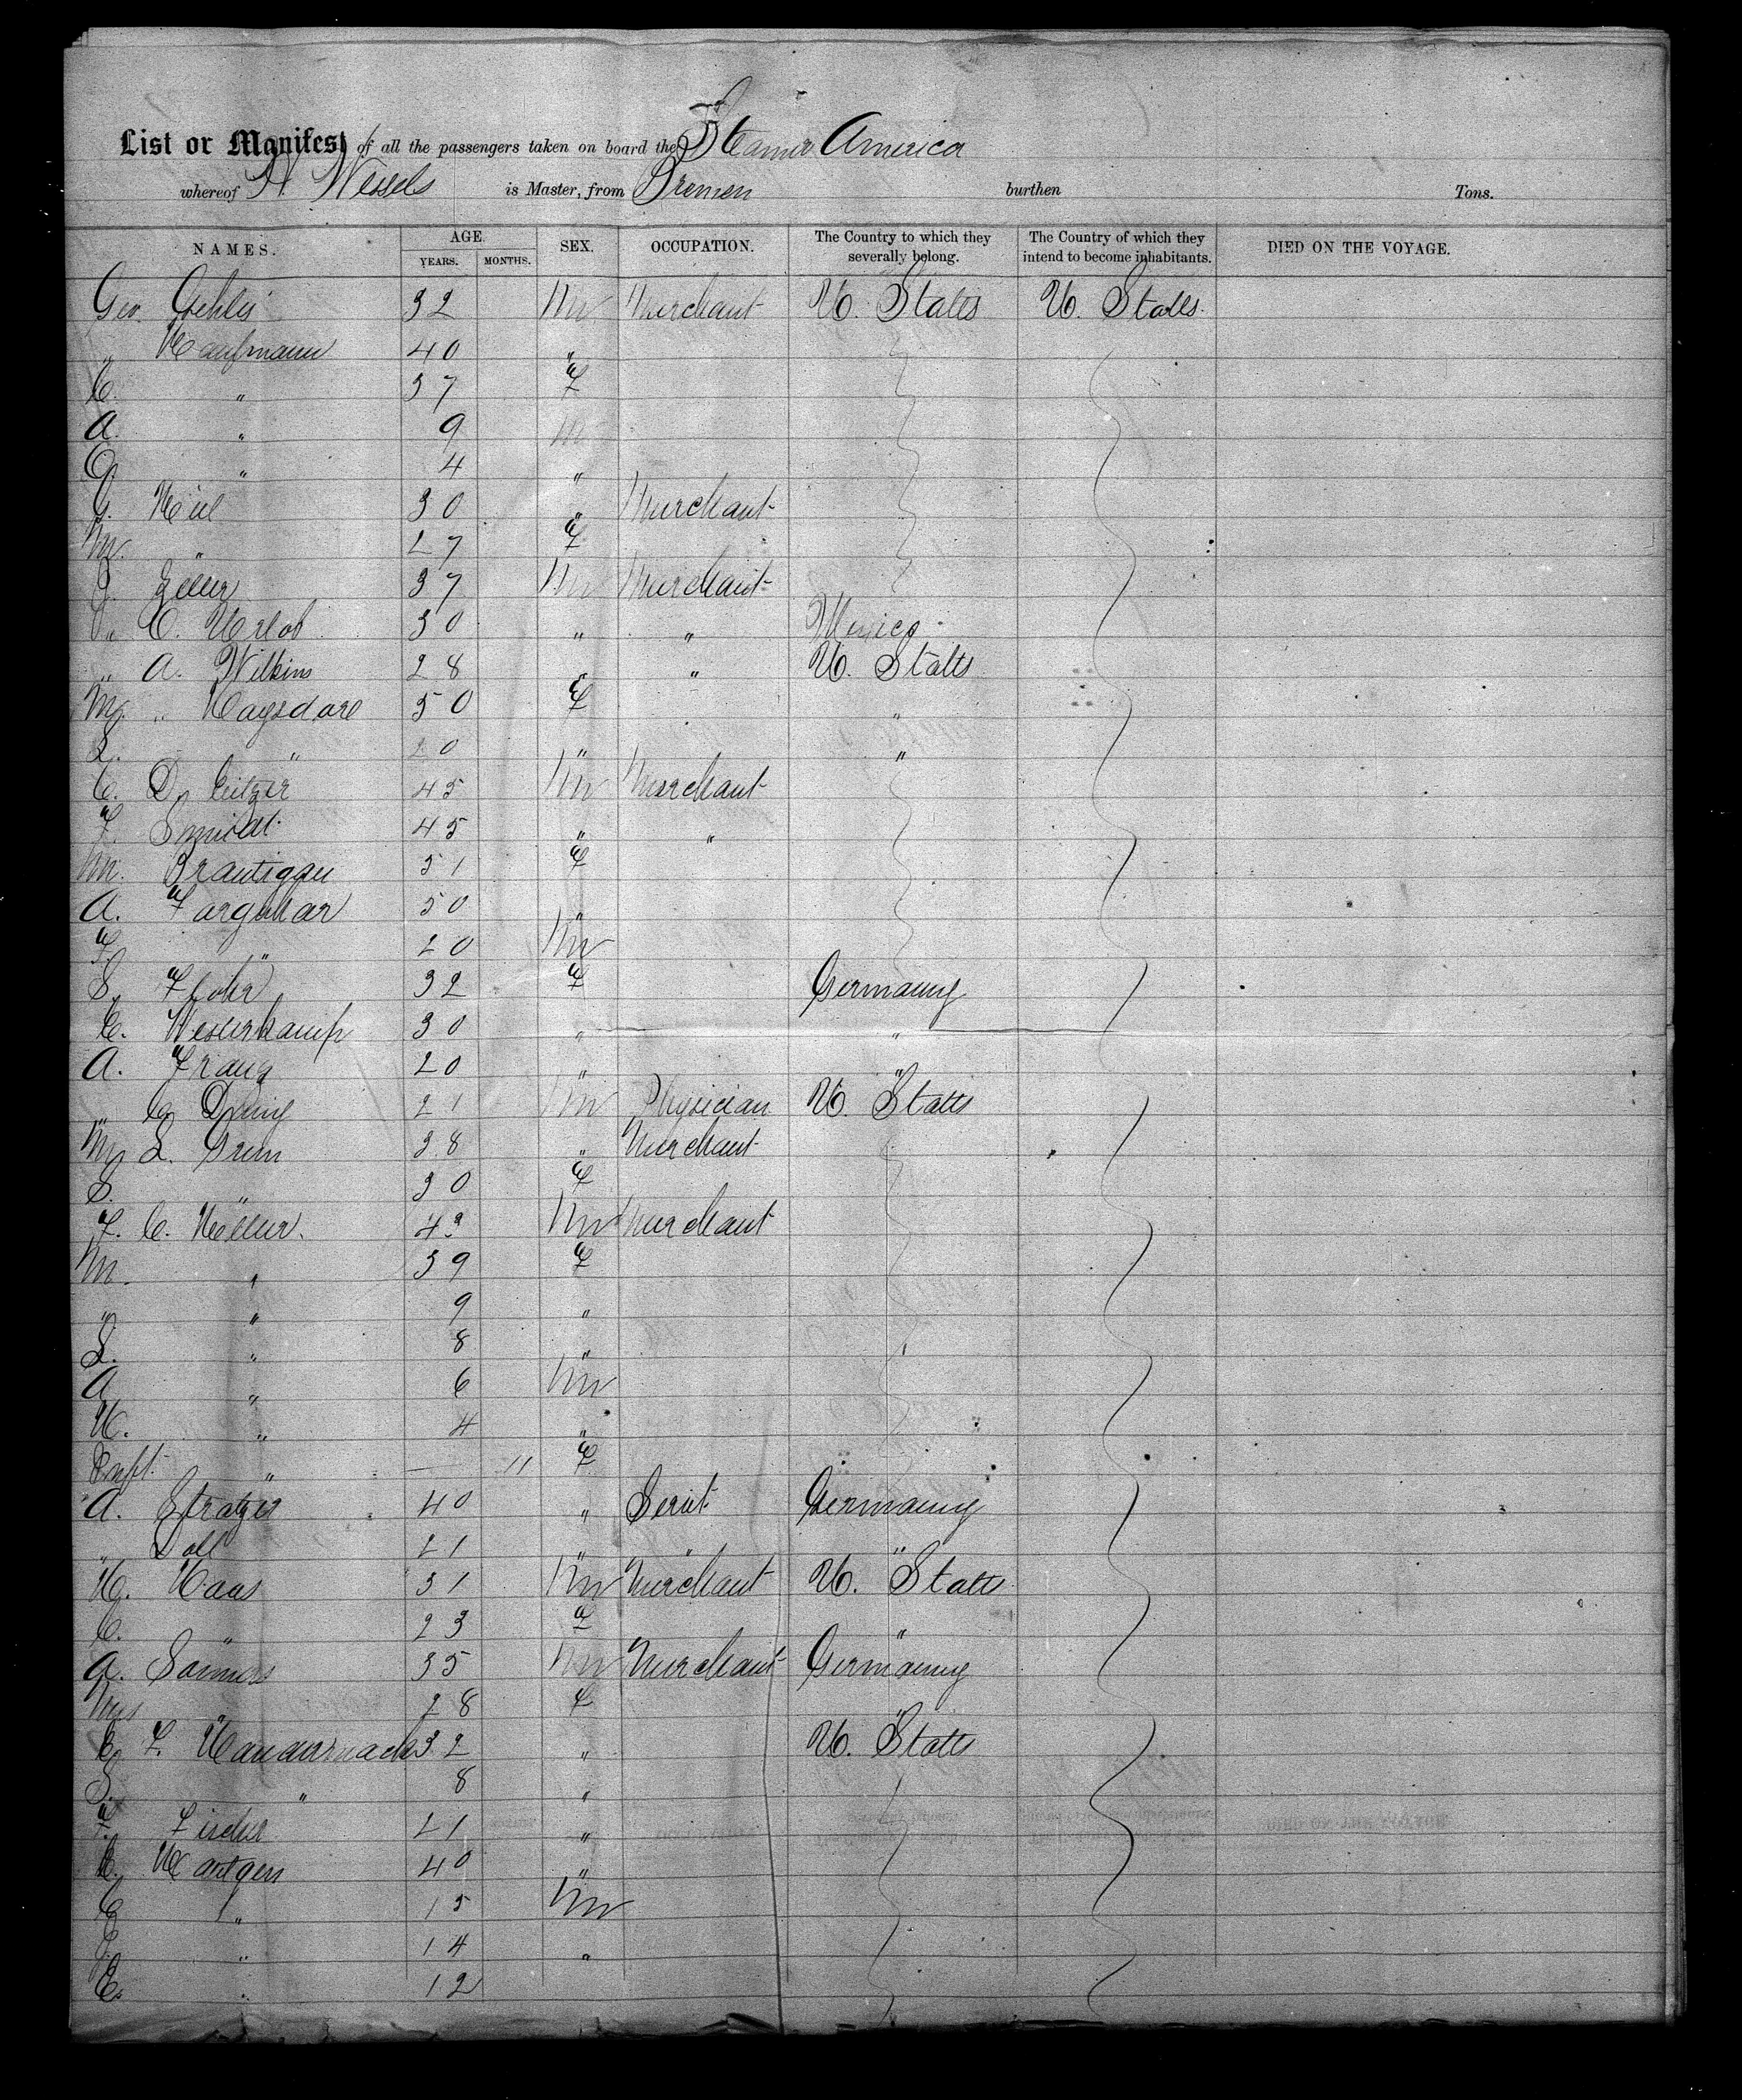 List or Manifest of all the passengers taken on board the Steamer America
whereof H. Wessels is Master, from Bremen burthen Tons.
NAMES. AGE. YEARS. MONTHS. SEX. OCCUPATION. The Country to which they severally belong. The Country of which they intend to become inhabitants. DIED ON THE VOYAGE.
Geo. 32 M Merchant U. States U. States
" Kaufmann 40 "
C. " 37 F
A. " 9 M
" 4 "
30 " Merchant
M. " 27 F
Zeller 37 M Merchant
" C. 30 " " Mexico
" A. Wilkins 28 " " U. States
" 50 F "
L. " 20 " "
C. D. 45 M Merchant
F. Smidt 45 " "
M. 51 F
A. Farquhar 50 "
F. " 20 M
S. 32 F Germany
C. Westerkamp 30 " "
A. Franz 20 " "
" 21 M Physician U. States
L. Grun 38 " Merchant
S. " 30 F
F. C. Keller. 43 M Merchant
M. " 39 F
" " 9 "
L. " 8 "
A. " 6 M
" 4 "
Inft. " — 11 F
A. 40 " Servt. Germany
" Doll 21 " " "
H. Haas 31 M Merchant U. States
C. " 23 F "
A. 35 M Merchant Germany
Mrs " 28 F "
F. 32 " U. States
S. " 8 "
F. Fischer 21 "
40 "
" 15 M
" 14 "
E. " 12